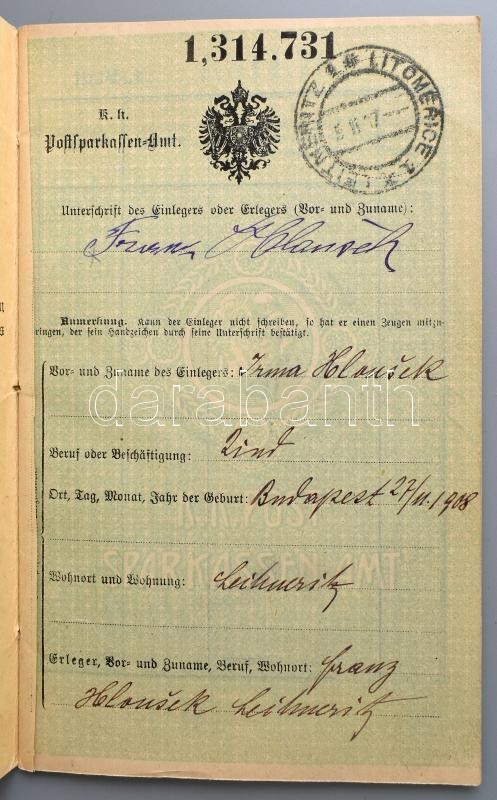 1,314.731
LEITMERITZ 1 * LITOMĚŘICE 1 *
K. k.
Postsparkassen-Amt.
Unterschrift des Einlegers oder Erlegers (Vor- und Zuname):
Franz Hloušek
Anmerkung. Kann der Einleger nicht schreiben, so hat er einen Zeugen mitzu-
bringen, der sein Handzeichen durch seine Unterschrift bestätigt.
Vor- und Zuname des Einlegers: Irma Hloušek
darabanth
Beruf oder Beschäftigung: Kind
Ort, Tag, Monat, Jahr der Geburt: Budapest 27/II. 1908
K.K. POST
SPARKASSEN-AMT
Wohnort und Wohnung: Leitmeritz
Erleger, Vor- und Zuname, Beruf, Wohnort: Franz
Hloušek Leitmeritz